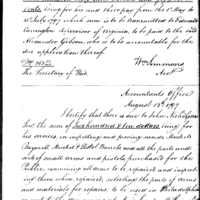 cents being for his and their pay from the 1st May to
31st July 1797 which sum is to be transmitted to Edward
Carrington Supervisor of Virginia, to be paid to the said
Alexander Gibson, who is to be accountable for the
due application thereof.
Wm Simmons
The Secretary of War. Acctt
Accountants Office
August 12th 1797
I Certify that there is due to John Nicholson
the sum of two hundred & ten dollars being for
his services in inspecting and proving Muskets
Bayonets Musket & Pistol Barrels and all the parts and
sorts of small arms and pistols purchased for the
Public, examining all arms to be repaired, and inspect-
ing them when repaired, selecting the parts of arms
and materials for repairs, to be used in Philadelphia